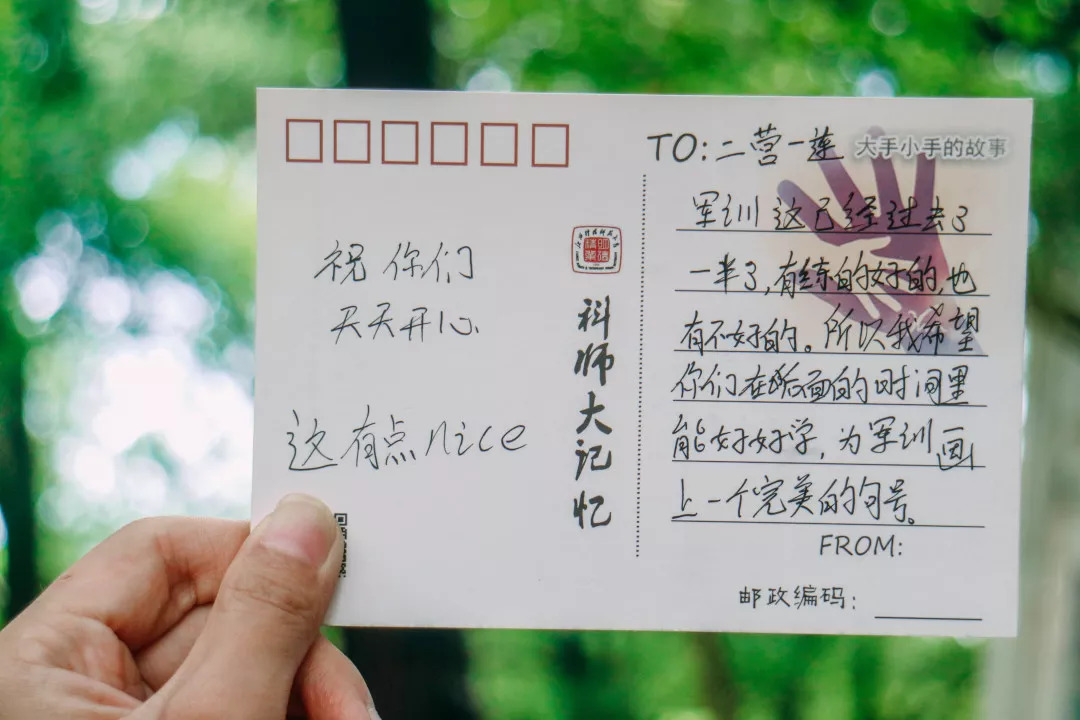 祝你们
天天开心.
这有点nice
科师大记忆
TO:二营一莲
大手小手的故事
军训这已经过去了
一半了,有练的好的,也
有不好的。所以我希望
你们在后面的时间里
能好好学,为军训画
上一个完美的句号。
FROM:
邮政编码: